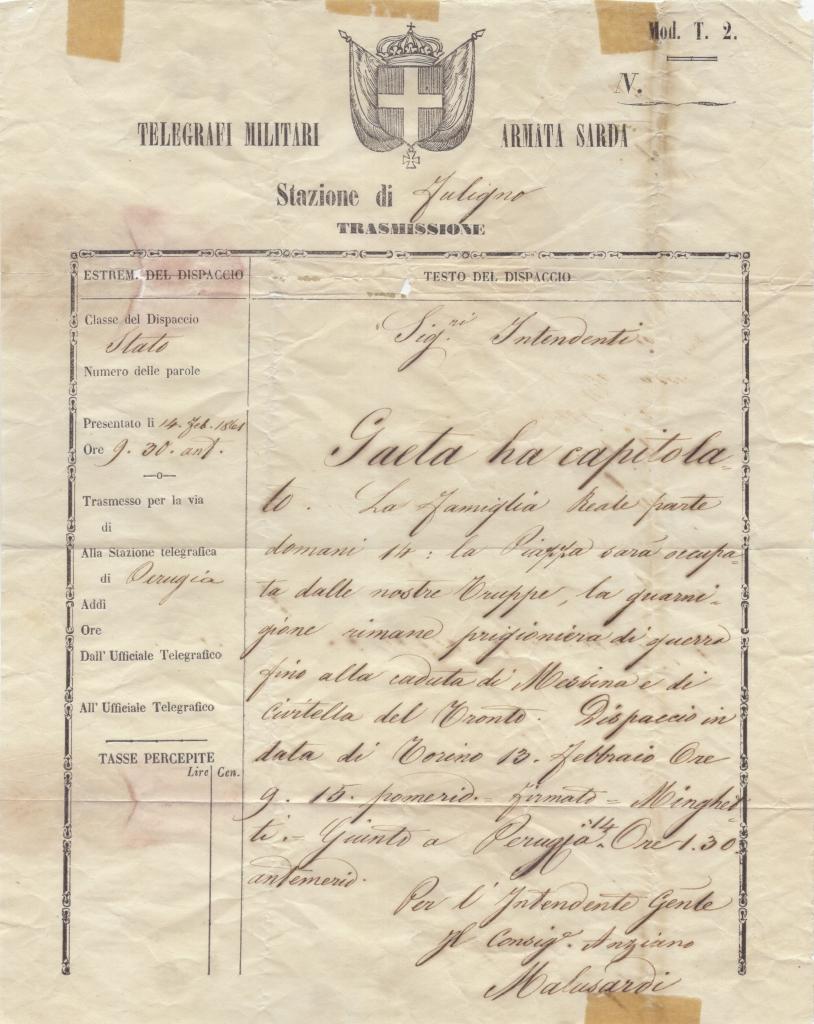 Mod. T. 2.
N.
TELEGRAFI MILITARI ARMATA SARDA
Stazione di Fuligno
TRASMISSIONE
ESTREM. DEL DISPACCIO
Classe del Dispaccio
Stato
Numero delle parole
Presentato li 14. Feb. 1861
Ore 9. 30. ant.
Trasmesso per la via
di
Alla Stazione telegrafica
di Perugia
Addi
Ore
Dall' Ufficiale Telegrafico
All' Ufficiale Telegrafico
TASSE PERCEPITE
Lire Cen.
TESTO DEL DISPACCIO
Sig.ri Intendenti
Gaeta ha capitola-
to. La Famiglia Reale parte
domani 14: la Piazza sarà occupa-
ta dalle nostre Truppe, la guarni-
gione rimane prigioniera di guerra
fino alla caduta di Messina e di
Civitella del Tronto. Dispaccio in
data di Torino 13. Febbraio Ore
9. 15. pomerid. = Firmato = Minghet-
ti. = Giunto a Perugia :14. Ore 1.30
antemerid.
Per l'Intendente Gen.le
Il Consig.e Anziano
Malusardi